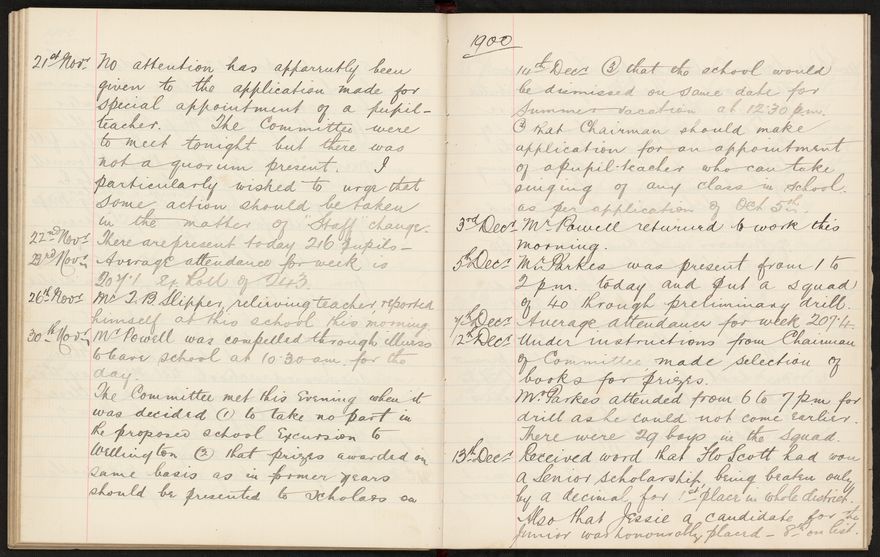 21st Novr No attention has apparrutly been
given to the application made for
special appointment of a pupil-
teacher. The Committee were
to meet tonight but there was
not a quorum present. I
particularly wished to urge that
some action should be taken
in the matter of Staff change.
22nd Novr There are present today 216 pupils -
23rd Novr Average attendance for week is
207.1 Ex Roll of 243.
26th Novr Mr T. B Slipper, relieving teacher, reported
himself at this school this morning.
30th Novr Mr Powell was compelled through illness
to leave school at 10.30 am. for the
day.
The Committee met this Evening when it
was decided (1) to take no part in
the proposed school Excursion to
Wellington (2) that prizes awarded on
same basis as in former years
should be presented to scholars on
1900
14th Decr (3) that the school would
be dismissed on same date for
Summer vacation at 12.30 p.m.
that Chairman should make
application for an appointment
of a pupil-teacher who can take
singing of any class in school.
as per application of Oct 5th.
3rd Decr Mr Powell returned to work this
morning.
5th Decr Mr Parkes was present from 1 to
2 pm. today and put a squad
of 40 through preliminary drill.
7th Decr Average attendance for week 207.4.
Decr Under instructions from Chairman
of Committee made selection of
books for prizes.
Mr Parkes attended from 6 to 7 pm for
drill as he could not come earlier.
There were 29 boys in the Squad.
13th Decr Received word that Flo Scott had won
a Senior Scholarship, being beaten only
by a decimal, for 1st place in whole district.
Also that Jessie a candidate for the
Junior was honourably placed - 8th on list.